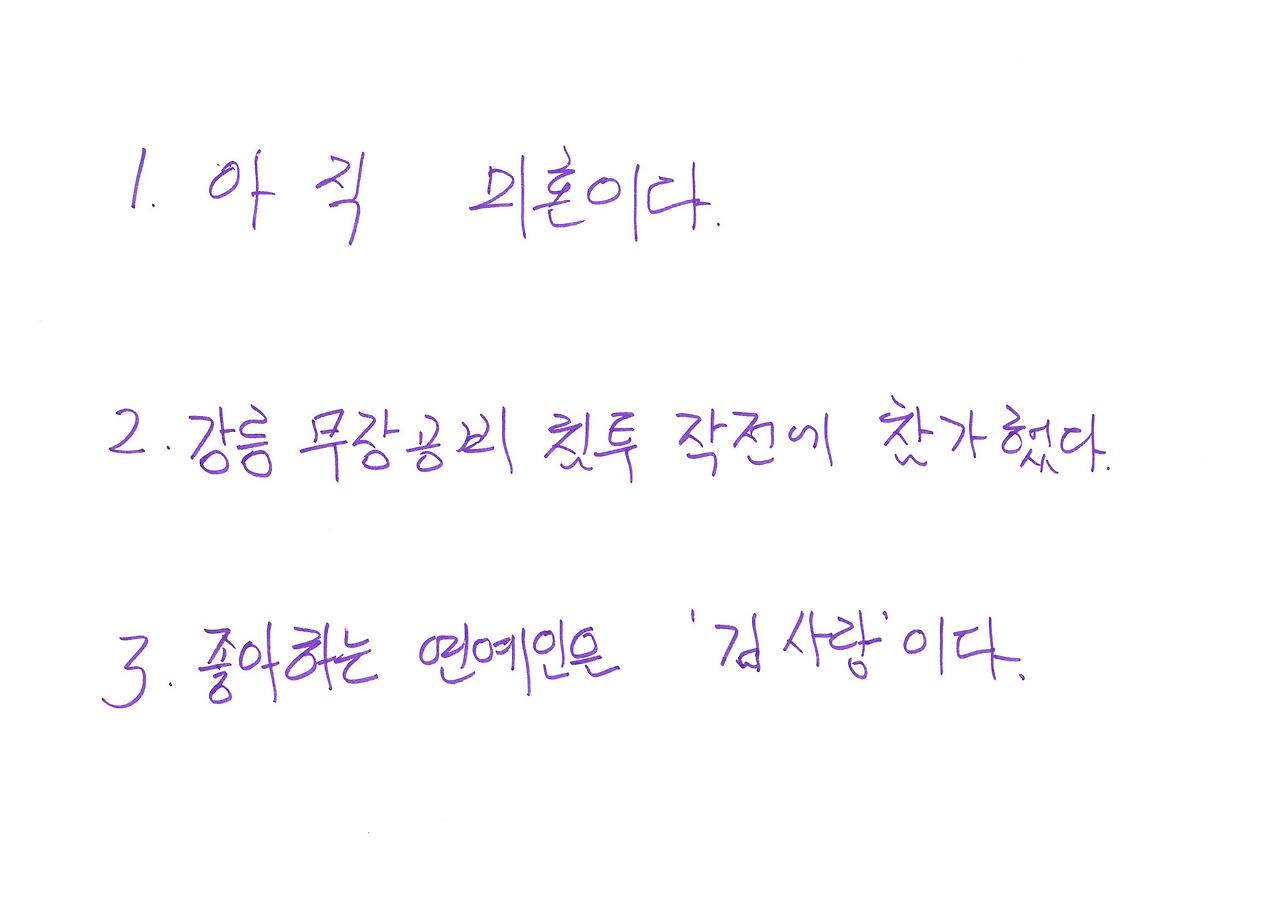 1. 아직 미혼이다.
2. 강릉 무장공비 침투 작전에 참가했다.
3. 좋아하는 연예인은 '김사랑'이다.